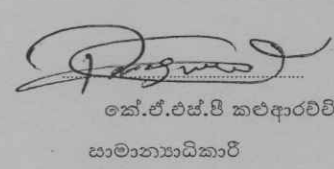 කේ.ඒ.එස්.පී කළුආරච්චි
සාමාන්‍යාධිකාරී